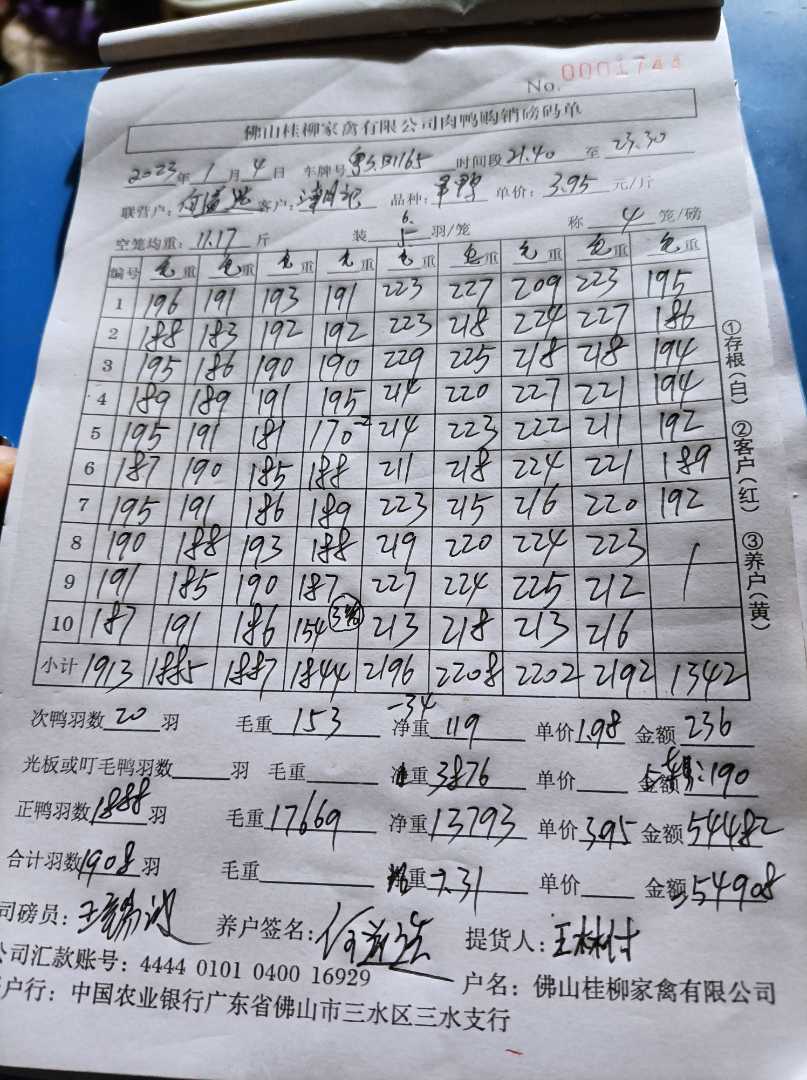 No. 0001744
佛山桂柳家禽有限公司肉鸭购销磅码单
2023年 1月 4日 车牌号 时间段 21.40 至 23.30
联营户: 客户: 品种: 单价: 3.95 元/斤
空笼均重: 11.17 斤 装 6. 5 羽/笼 称 4 笼/磅
编号 毛重 毛重 毛重 毛重 毛重 毛重 毛重 毛重 毛重
1 196 191 193 191 223 227 209 223 195
2 188 183 192 192 223 218 224 227 186
3 195 186 190 190 229 225 218 218 194
4 189 189 191 195 214 220 227 221 194
5 195 191 181 170-2 214 223 222 211 192
6 187 190 185 188 211 218 224 221 189
7 195 191 186 189 223 215 216 220 192
8 190 188 193 188 219 220 224 223
9 191 185 190 187 227 224 225 212
10 187 191 186 154 213 218 213 216
小计 1913 1885 1887 1844 2196 2208 2202 2192 1342
次鸭羽数 20 羽 毛重 153 -34 净重 119 单价 1.98 金额 236
光板或叮毛鸭羽数 羽 毛重 重 3876 单价 金额 190
正鸭羽数 1888 羽 毛重 17669 净重 13793 单价 3.95 金额 54482
合计羽数 1908 羽 毛重 重 7.31 单价 金额 54908
司磅员: 养户签名: 提货人: 王林付
公司汇款账号: 4444 0101 0400 16929 户名: 佛山桂柳家禽有限公司
户行: 中国农业银行广东省佛山市三水区三水支行
①存根(白) ②客户(红) ③养户(黄)